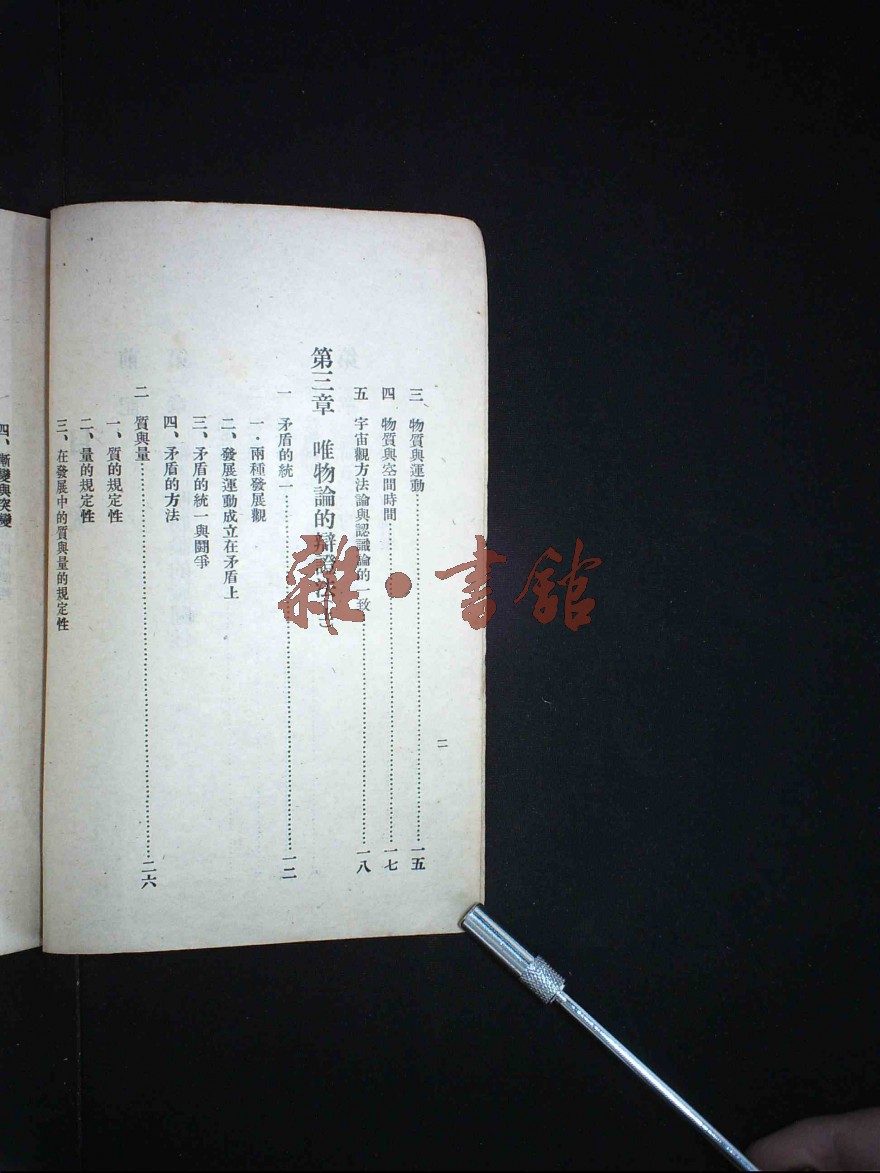 二
三　物質與運動……一五
四　物質與空間時間……一七
五　宇宙觀方法論與認識論的一致……一八
第三章　唯物論的辯證法
一　矛盾的統一……一二
一・兩種發展觀
二、發展運動成立在矛盾上
三、矛盾的統一與闘爭
四、矛盾的方法
二　質與量……二六
一、質的規定性
二、量的規定性
三、在發展中的質與量的規定性
四、漸變與突變
雜・書館